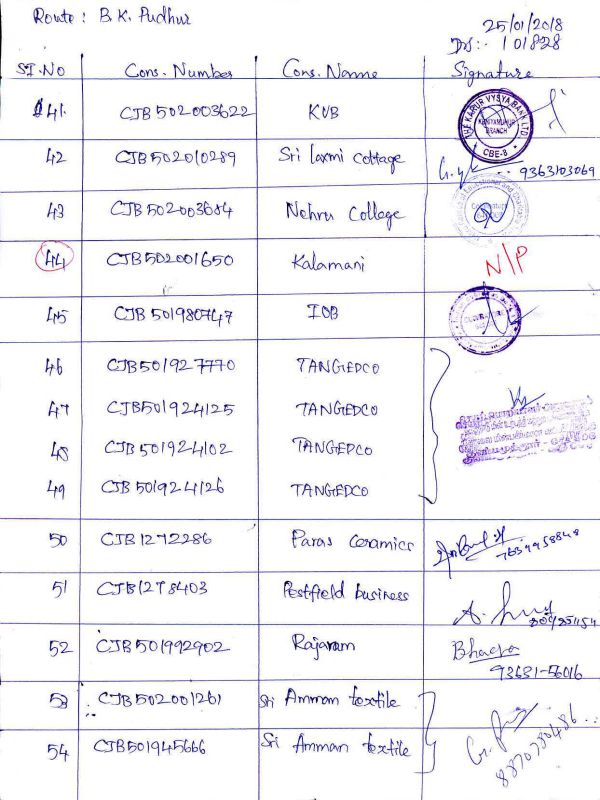 Route : B.K. Pudhur
25/01/2018
DS:- 101828
SI.No Cons. Number Cons. Name Signature
41. CJB502003622 KVB
THE KARUR VYSYA BANK LTD. KUNIYAMUTHUR BRANCH CBE-8
42 CJB502010289 Sri laxmi cottage 9363103069
43 CJB502003684 Nehru College
44 CJB502001650 Kalamani N/P
45 CJB501980747 IOB
46 CJB501927770 TANGEDCO
47 CJB501924125 TANGEDCO
48 CJB501924102 TANGEDCO
49 CJB501924126 TANGEDCO
50 CJB1272286 Paras Ceramics
51 CJB1278403 Pestfield business
52 CJB501992902 Rajaram
93631-56016
53 CJB502001261 Sri Amman textile
54 CJB501945666 Sri Amman textile 8870780486